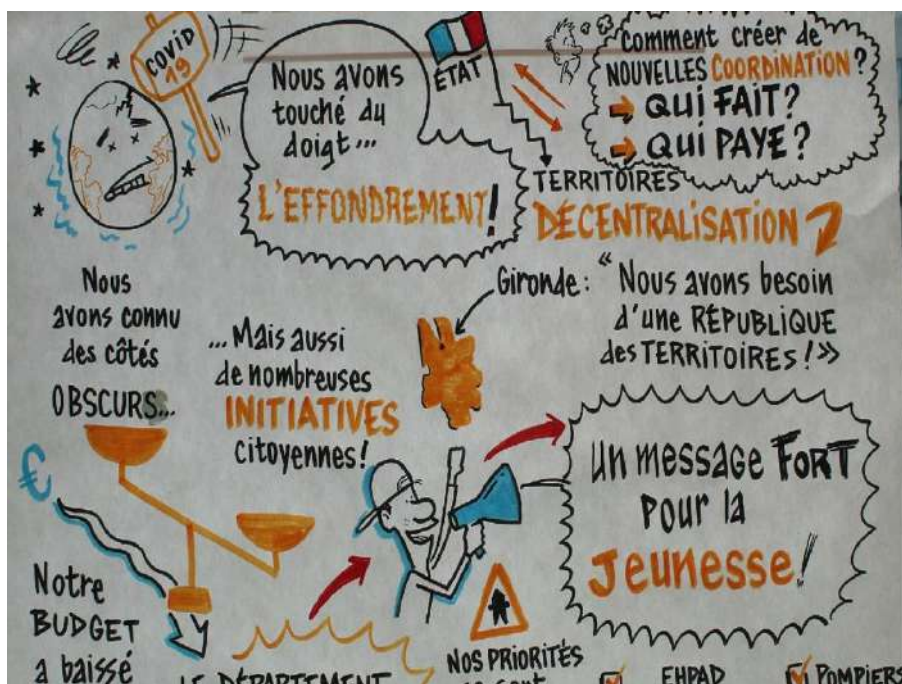 COVID
19
Nous avons
touché du
doigt...
L'EFFONDREMENT!
ÉTAT
TERRITOIRES
DÉCENTRALISATION
Comment créer de
NOUVELLES COORDINATION?
QUI FAIT?
QUI PAYE?
Nous
avons connu
des côtés
OBSCURS...
...Mais aussi
de nombreuses
INITIATIVES
citoyennes!
Gironde: "Nous avons besoin
d'une RÉPUBLIQUE
des TERRITOIRES!»
Un message FORT
pour la
Jeunesse!
€
Notre
BUDGET
a baissé
LE DÉPARTEMENT
NOS PRIORITÉS
EHPAD
POMPIERS